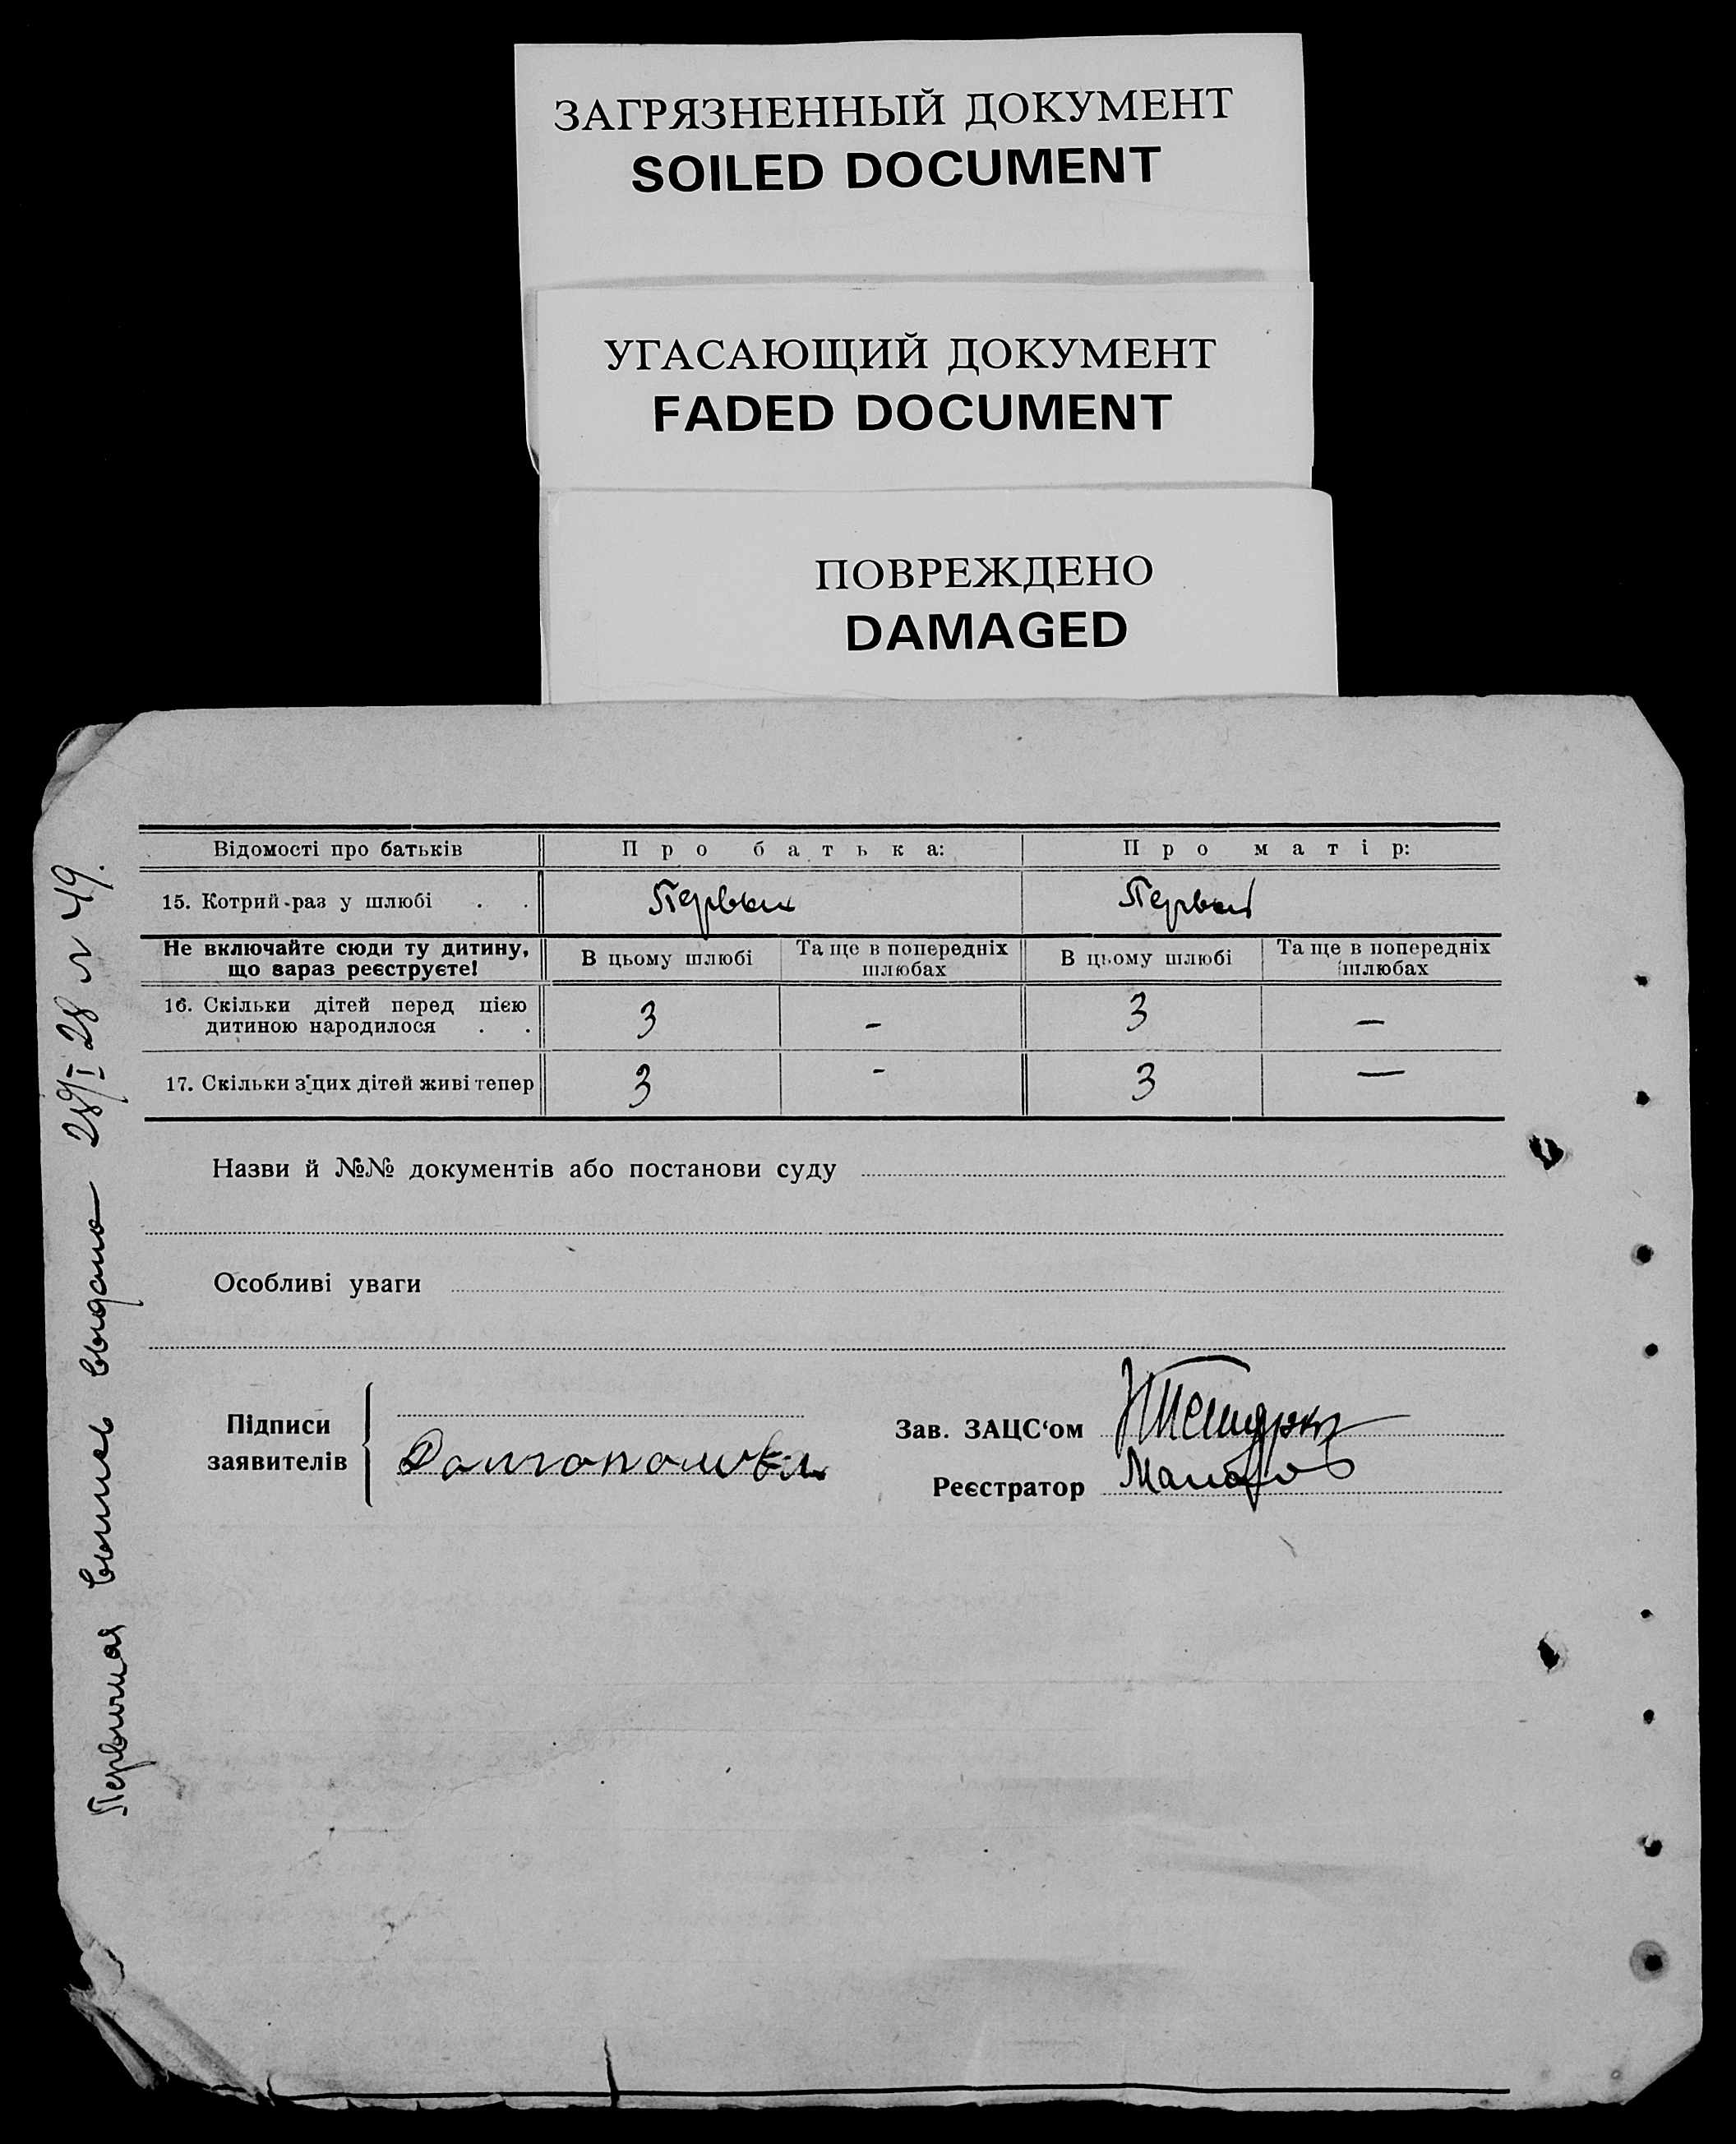 ЗАГРЯЗНЕННЫЙ ДОКУМЕНТ
SOILED DOCUMENT
УГАСАЮЩИЙ ДОКУМЕНТ
FADED DOCUMENT
ПОВРЕЖДЕНО
DAMAGED
Відомості про батьків Про батька: Про матір:
15. Котрий-раз у шлюбі . . Первый Первый
Не включайте сюди ту дитину, що вараз реєструєте! В цьому шлюбі Та ще в попередніх шлюбах В цьому шлюбі Та ще в попередніх шлюбах
16. Скільки дітей перед цією
дитиною народилося . . 3 - 3 —
17. Скільки з'цих дітей живі тепер 3 - 3 —
Назви й №№ документів або постанови суду
Особливі уваги
Підписи
заявителів
Зав. ЗАЦС‘ом
Реєстратор
Первичная выпись выдана 28/I 28 г 49.